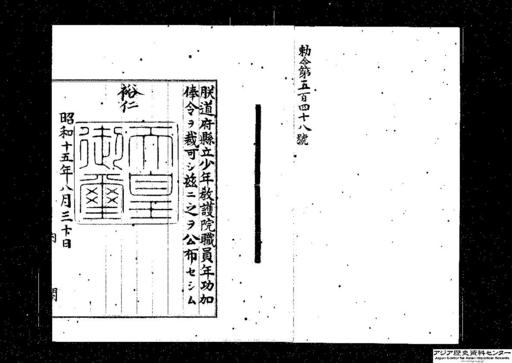 勅令第五百四十八號
朕道府縣立少年教護院職員年功加
俸令ヲ裁可シ茲ニ之ヲ公布セシム
裕仁
天皇
御璽
昭和十五年八月三十日
内閣
アジア歴史資料センター
Japan Center for Asian Historical Records